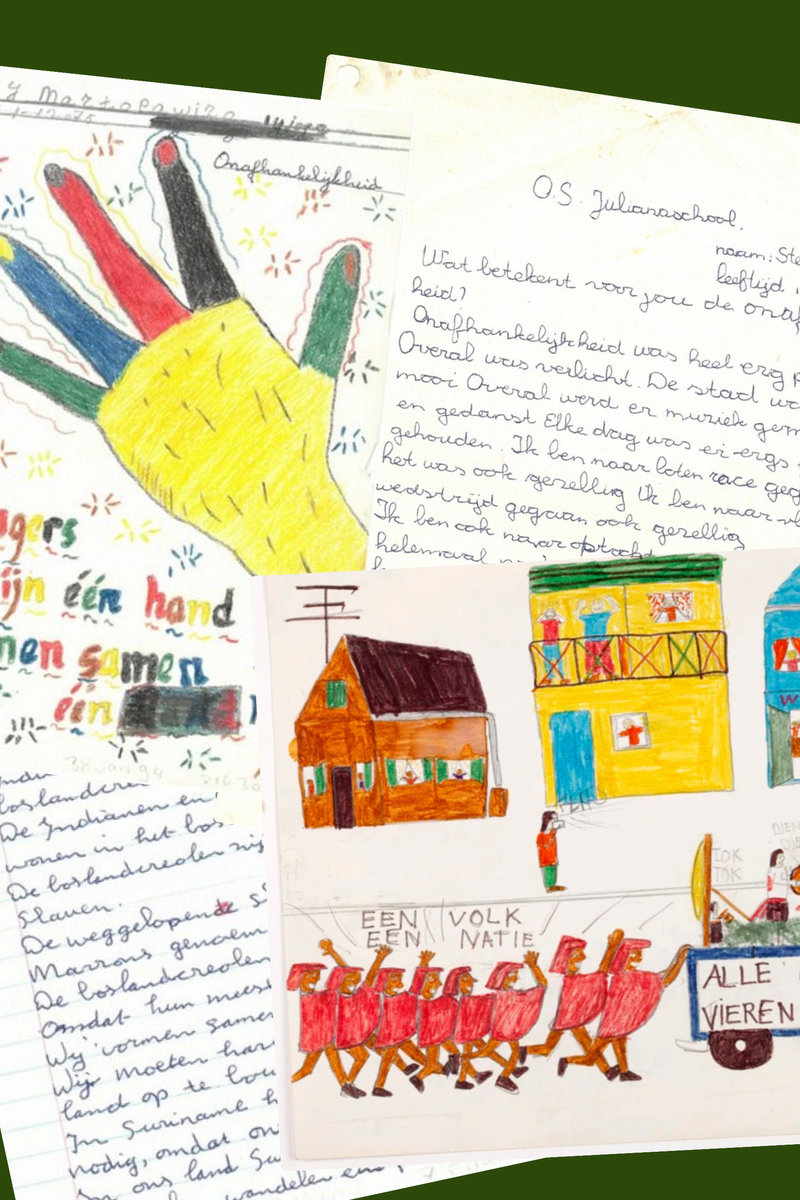 Martopawiro
Onafhankelijkheid
gers
ijn één hand
men samen
één
38 van 94
O.S. Julianaschool.
naam: Ste
leeftijd
Wat betekent voor jou de onaf
heid?
Onafhankelijkheid was heel erg
Overal was verlicht. De stad wa
mooi Overal werd er muziek gem
en gedanst Elke dag was er ergs
gehouden. Ik ben naar boten race geg
het was ook gezellig Ik ben naar
wedstrijd gegaan ook gezellig
Ik ben ook naar optocht
helemaal
EEN VOLK
EEN NATIE
TOK
TOK
DIEN
ALLE
VIEREN
boslandcre
De Indianen en
wonen in het bos
De boslandcreolen zij
Slaven.
De weggelopende s
Marrons genoem
De boslandcreolen
Omdat hun mees
Wij vormen samen
Wij moeten har
land op te bou
In Suriname h
nodig, omdat on
ons land Su
wandelen en